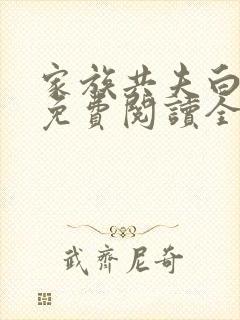 家族共夫白
免費閱讀全
武齊尼奇